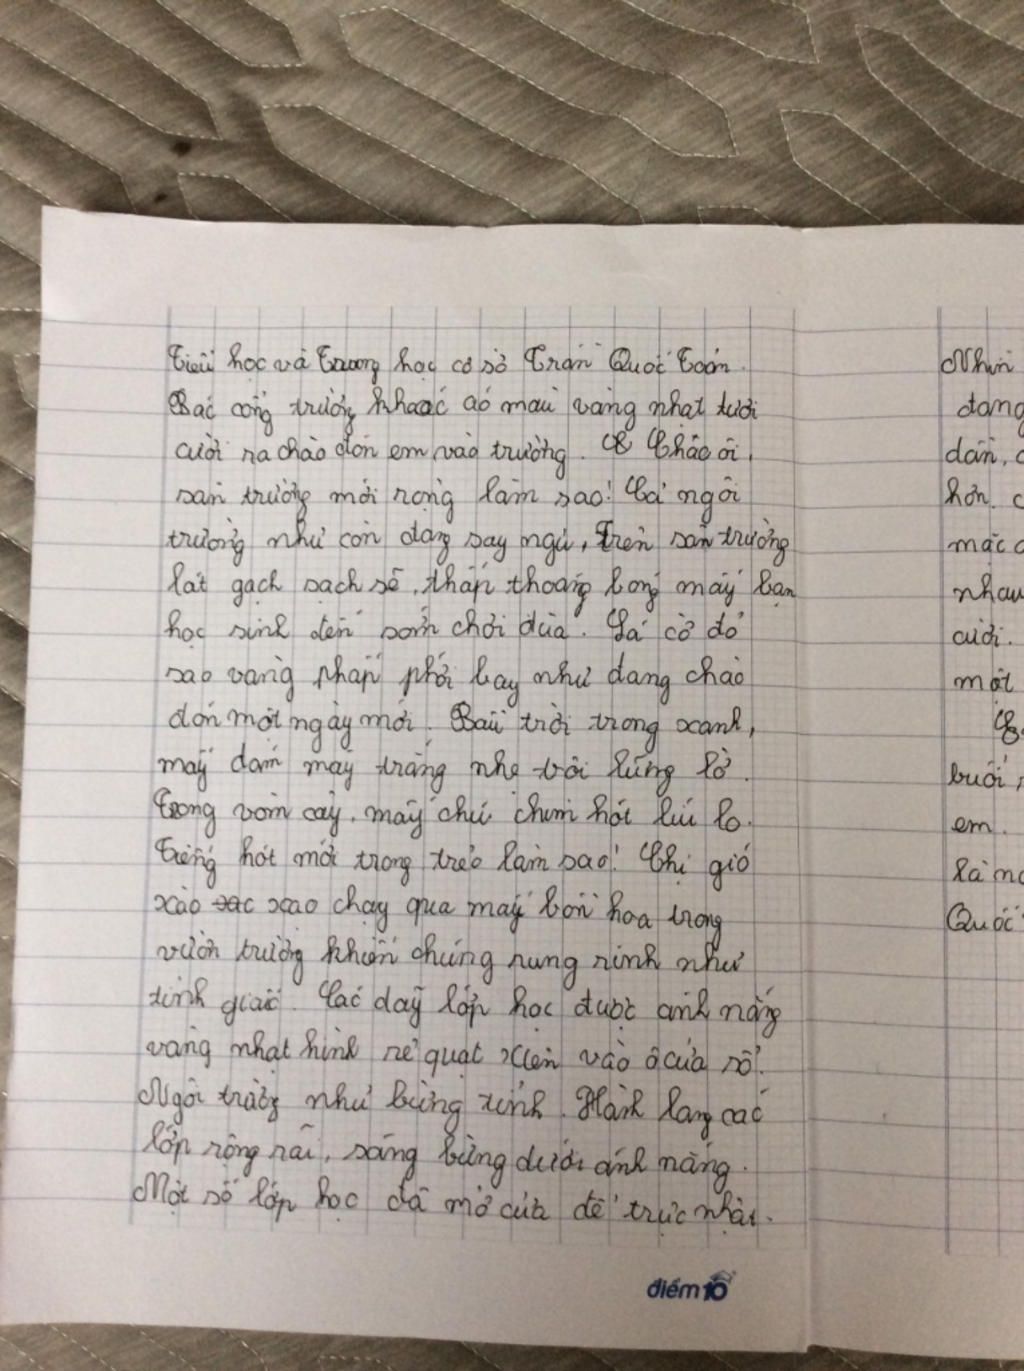 Tiểu học và Trung học cơ sở Trần Quốc Toản.
Bác cổng trường khoác áo màu vàng nhạt tươi
cười ra chào đón em vào trường. Chao ôi,
sân trường mới rộng làm sao! Cả ngôi
trường như còn đang say ngủ, Trên sân trường
lát gạch sạch sẽ, thấp thoáng bóng mấy bạn
học sinh đến sớm chơi đùa. Lá cờ đỏ
sao vàng phấp phới bay như đang chào
đón một ngày mới. Bầu trời trong xanh,
mấy đám mây trắng nhẹ trôi lững lờ.
Trong vòm cây, mấy chú chim hót líu lo.
Tiếng hót mới trong trẻo làm sao! Chị gió
xào xạo chạy qua mấy bồn hoa trong
vườn trường khiến chúng rung rinh như
tỉnh giấc. Các dãy lớp học được ánh nắng
vàng nhạt hình rẻ quạt xiên vào ô cửa sổ.
Ngôi trường như bừng tỉnh. Hành lang các
lớp rộng rãi, sáng bừng dưới ánh nắng.
Một số lớp học đã mở cửa để trực nhật.
điểm10
Nhìn
đang
dân,
hơn.
mặc
nhau
cười.
một
buổi
em.
là
Quốc